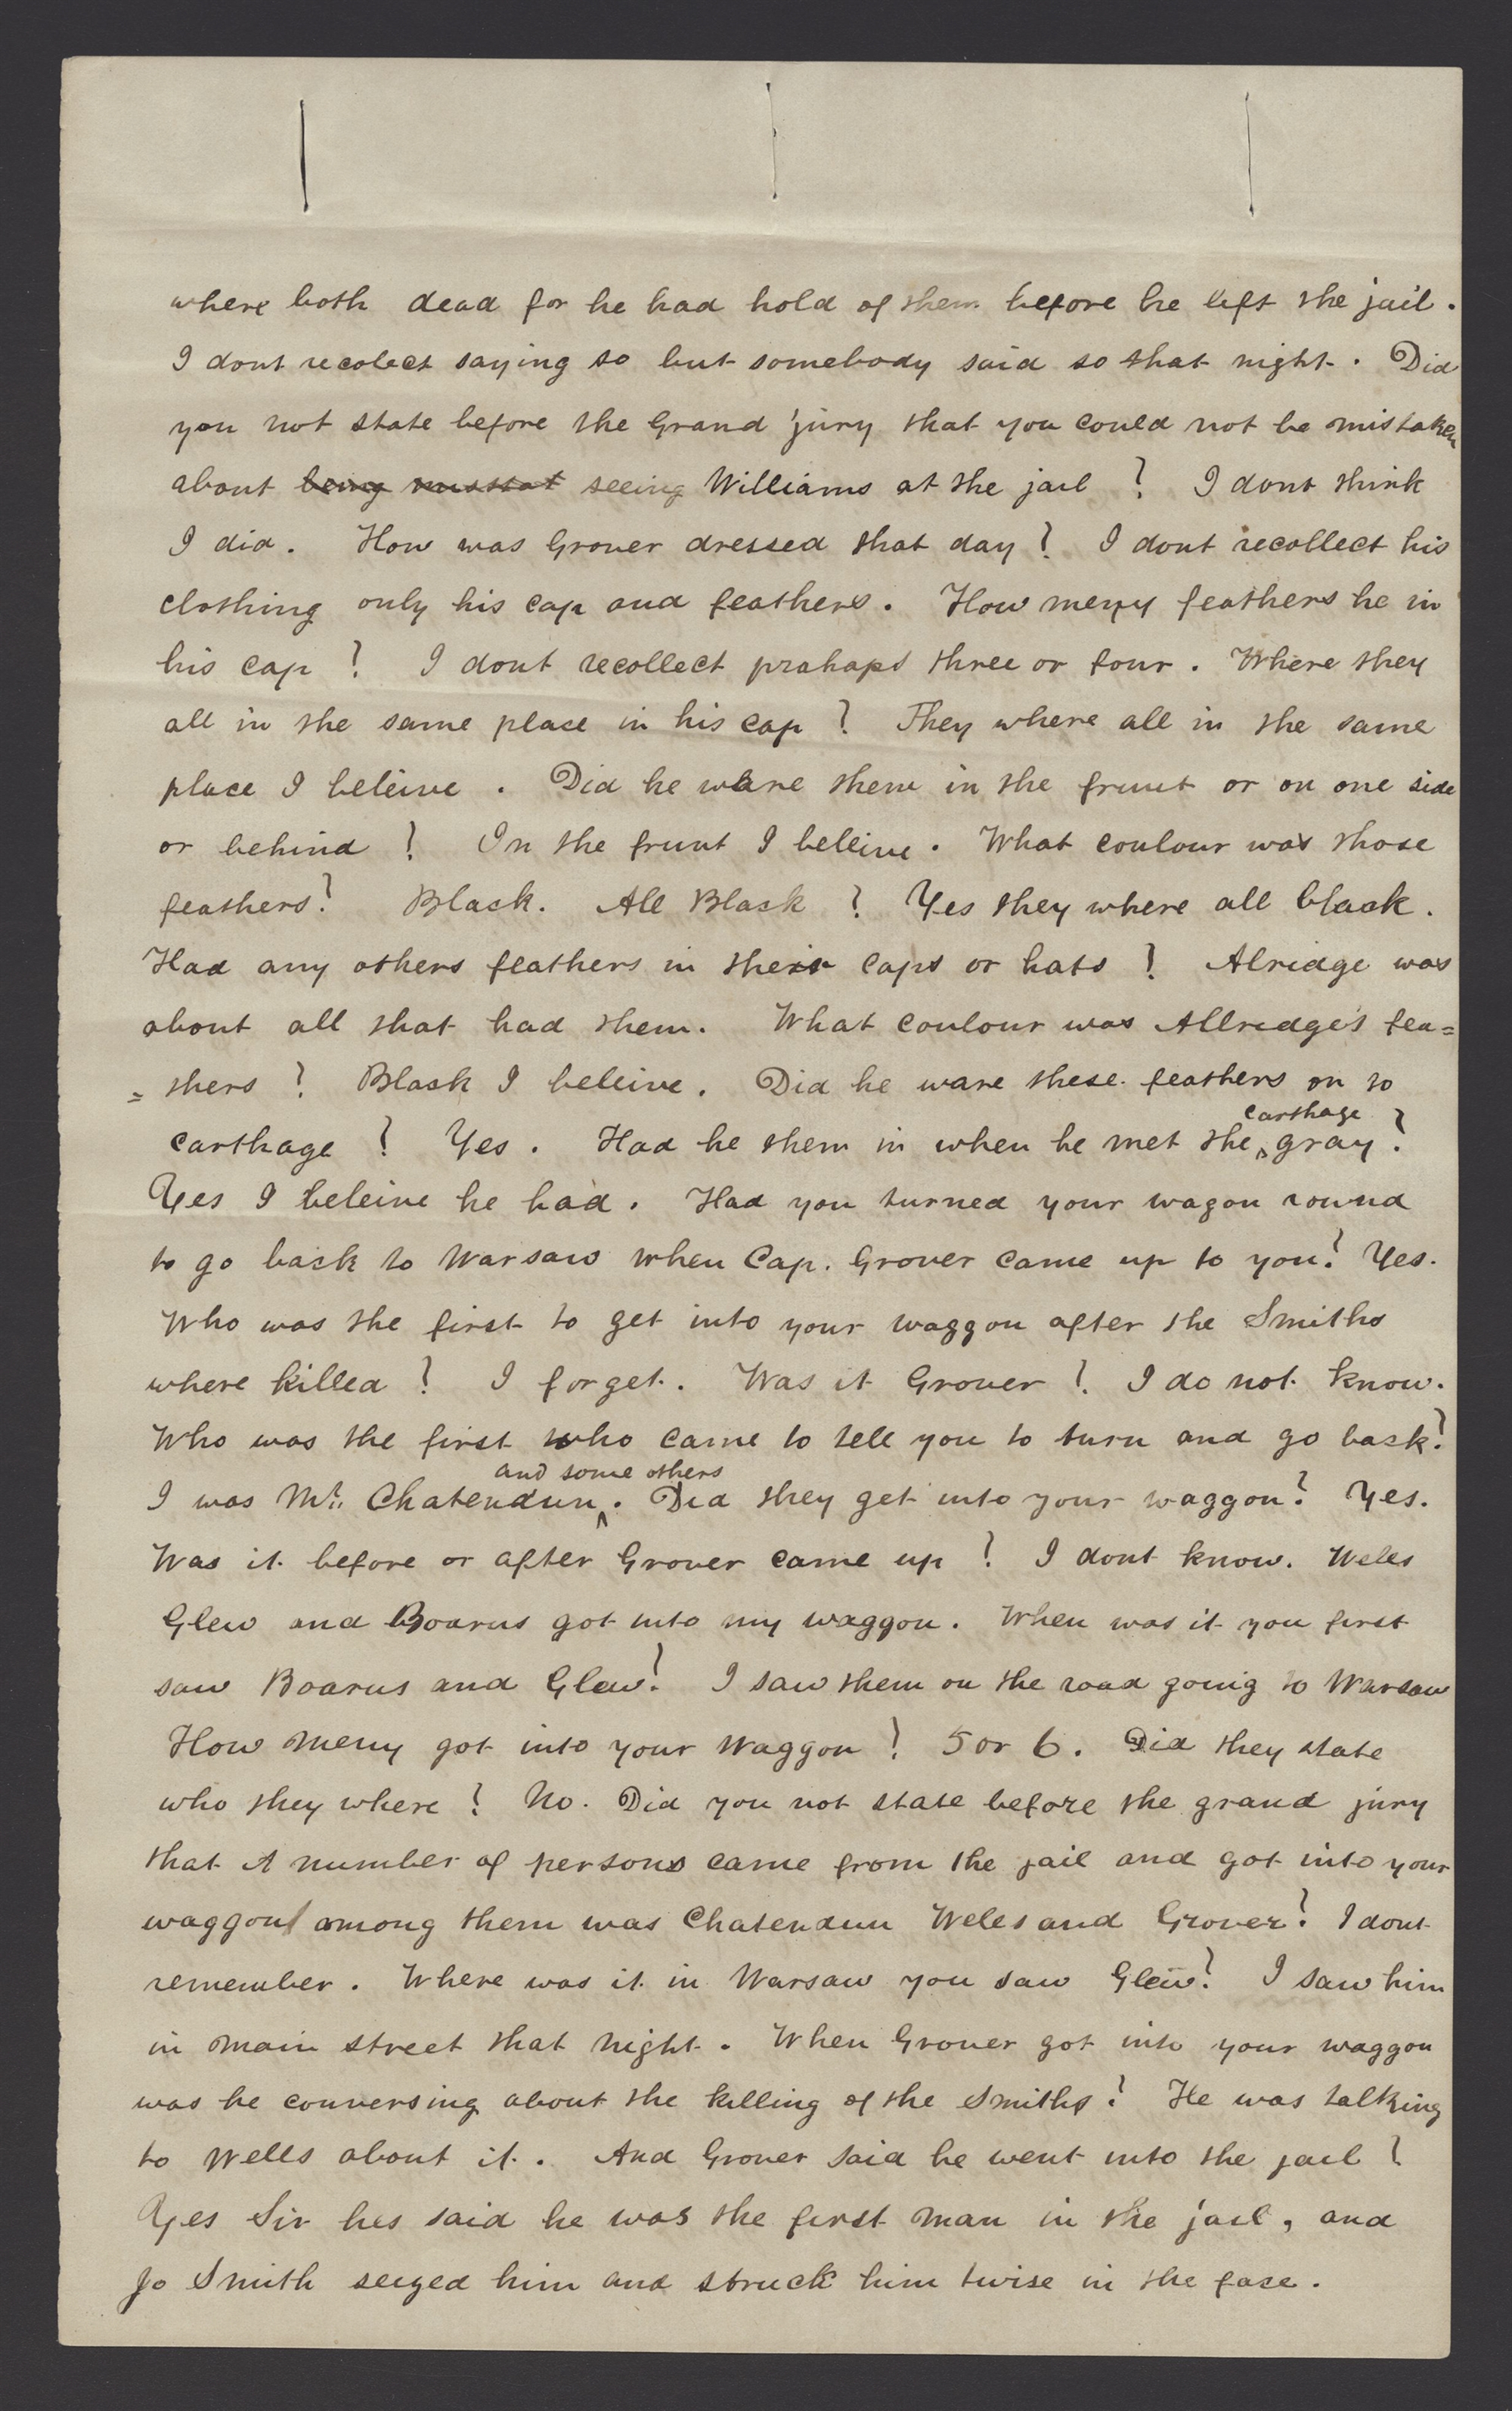 where both dead for he had hold of them before he left the jail.
I dont recolect saying so but somebody said so that night. Did
you not state before the Grand jury that you could not be mistaken
about being seeing Williams at the jail? I dont think
I did. How was Grover dressed that day? I dont recollect his
clothing only his cap and feathers. How meny feathers he in
his cap? I dont recollect prahaps three or four. Where they
all in the same place in his cap? They where all in the same
place I beleive. Did he ware them in the frunt or on one side
or behind? In the frunt I beleive. What coulour was those
feathers? Black. All Black? Yes they where all black.
Had any others feathers in their caps or hats? Alridge was
about all that had them. What coulour was Allredge's fea=
=thers? Black I beleive. Did he ware these feathers on to
carthage? Yes. Had he them in when he met the carthage gray?
Yes I beleive he had. Had you turned your wagon round
to go back to Warsaw when Cap. Grover came up to you? Yes.
Who was the first to get into your waggon after the Smiths
where killed? I forget. Was it Grover? I do not know.
Who was the first who came to tell you to turn and go back?
I was Mr. Chatendun and some others. Did they get into your waggon? Yes.
Was it before or after Grover came up? I dont know. Weles
Glew and Boarus got into my waggon. When was it you first
saw Boarus and Glew? I saw them on the road going to Warsaw
How meny got into your waggon? 5 or 6. Did they state
who they where? No. Did you not state before the grand jury
that A number of persons came from the jail and got into your
waggon among them was Chatendun Weles and Grover? I dont
remember. Where was it in Warsaw you saw Glew? I saw him
in main street that night. When Grover got into your waggon
was he conversing about the killing of the Smiths? He was talking
to Wells about it. And Grover said he went into the jail?
Yes Sir hes said he was the first man in the jail, and
Jo Smith seized him and struck him twise in the face.